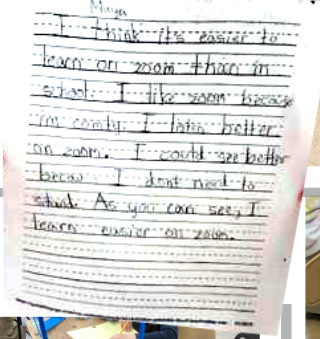 Maya
I think it's easier to
learn on zoom than in
school. I like zoom because
im comfy. I listin better
on zoom. I could see better
becau I dont need to
As you can see, I
learn easier on zoom.